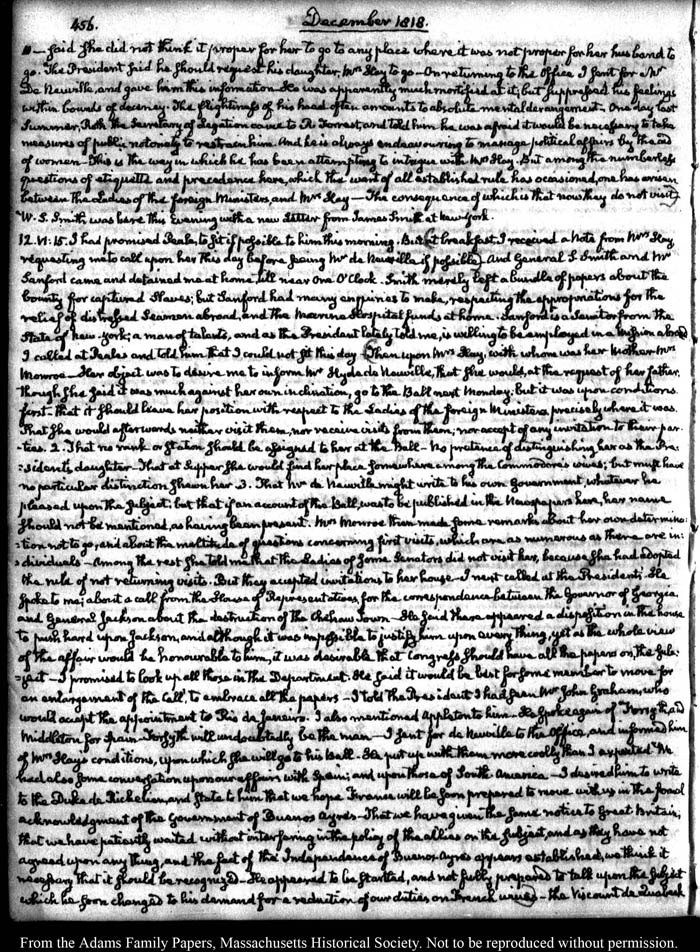 456.
December 1818.
— said she did not think it proper for her to go to any place where it was not proper for her husband to
go. The President said he should request his daughter, Mrs Hay to go — On returning to the Office I sent for Mr
de Neuville, and gave him this information. He was apparently much mortified at it, but suppressed his feelings
within bounds of decency. The flightiness of his head often amounts to absolute mental derangement. One day last
Summer, Roth the Secretary of Legation came to R. Forrest, and told him he was afraid it would be necessary to take
measures of public notoriety to restrain him. And he is always endeavouring to manage political affairs by the aid
of women — This is the way in which he has been attempting to intrigue with Mrs Hay. But among the numberless
questions of etiquette and precedence here, which the want of all established rule has occasioned, one has arisen
between the Ladies of the foreign Ministers, and Mrs Hay — The consequence of which is that now they do not visit.
W. S. Smith was here this Evening with a new Letter from James Smith at New York.
12. VI: 15. I had promised Peale, to sit if possible to him this morning. But at breakfast, I received a Note from Mrs Hay
requesting me to call upon her this day before seeing Mr de Neuville if possible. And General S. Smith and Mr
Sanford came and detained me at home, till near One O'Clock. Smith merely left a bundle of papers about the
bounty for captured Slaves; but Sanford had many enquiries to make, respecting the appropriations for the
relief of distressed Seamen abroad, and the Marine Hospital funds at home. Sanford is a Senator from the
State of New-York; a man of talents, and as the President lately told me, is willing to be employed in a Mission abroad
I called at Peale's and told him that I could not sit this day — Then upon Mrs Hay, with whom was her Mother Mrs
Monroe — Her object was to desire me to inform Mr Hyde de Neuville, that She would, at the request of her father,
though She said it was much against her own inclination, go to the Ball next Monday; but it was upon conditions.
first. that it should leave her position with respect to the Ladies of the foreign Ministers precisely where it was.
That She would afterwards neither visit them, nor receive visits from them; nor accept of any invitation to their par-
ties. 2. That no rank or Station should be assigned to her at the Ball — No pretence of distinguishing her as the Pre-
:sident's daughter — That at Supper She would find her place somewhere among the Commodore's wives; but must have
no particular distinction shewn her. 3. That Mr de Neuville might write to his own Government, whatever he
pleased upon the subject; but that if an account of this Ball, was to be published in the Newspapers here, her name
should not be mentioned, as having been present. Mrs Monroe then made some remarks about her own determina-
:tion not to go, and about the multitude of questions concerning first visits, which are as numerous as there are in:
:dividuals — Among the rest She told me that the Ladies of some Senators did not visit her, because She had adopted
the rule of not returning visits. But they accepted invitations to her house — I next called at the President's. He
spoke to me; about a call from the House of Representatives, for the correspondence between the Governor of Georgia
and General Jackson about the destruction of the Chehaw Town — He said there appeared a disposition in the house
to push hard upon Jackson, and although it was impossible to justify him upon every thing, yet as the whole view
of the affair would be honourable to him, it was desirable that Congress should have all the papers on, the sub:
:ject — I promised to look up all those in the Department. He said it would be best for some member to move for
an enlargement of the Call, to embrace all the papers — I told the President I had seen Mr John Graham, who
would accept the appointment to Rio de Janeiro. I also mentioned Appleton to him — He spoke again of Forsyth and
Middleton for Spain. Forsyth will undoubtedly be the man — I sent for de Neuville to the Office, and informed him
of Mrs Hay's conditions, upon which She will go to his Ball — He put up with them more coolly than I expected. We
had also some conversation upon our affairs with Spain; and upon those of South America — I desired him to write
to the Duke de Richelieu, and state to him that we hope France will be soon prepared to move with us in the
acknowledgment of the Government of Buenos Ayres — That we have given the same notice to Great Britain,
that we have patiently waited without interfering in the policy of the allies on the subject, and as they have not
agreed upon any thing, and the fact of the Independence of Buenos Ayres appears established, we think it
necessary that it should be recognized. He appeared to be startled, and not fully prepared to talk upon the subject
which he soon changed to his demand for a reduction of our duties on French wines — the Viscount de
From the Adams Family Papers, Massachusetts Historical Society. Not to be reproduced without permission.